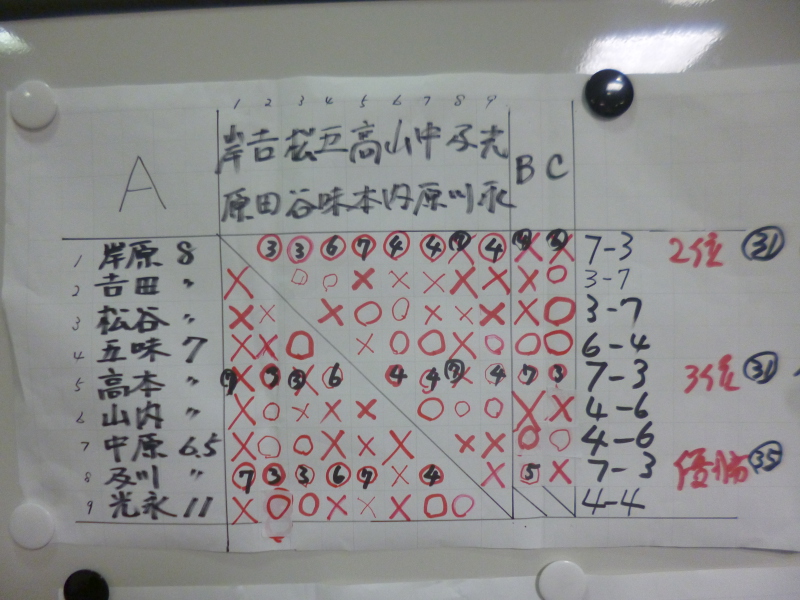 1 2 3 4 5 6 7 8 9
A 岸 吉 松 五 高 山 中 及 光 B C
原 田 谷 味 本 内 原 川 永
1 岸原 8 ③ ③ ⑥ ⑦ ④ ④ 7-3 2位 ㉛
2 吉田 〃 X ○ ○ X X X X X X ○ 3-7
3 松谷 〃 X X X ○ ○ X X X X ○ 3-7
4 五味 7 X X ○ X ○ ○ X ○ ○ ○ 6-4
5 高本 〃 7-3 3位 ㉛
6 山内 〃 X ○ X X X ○ ○ ○ X X 4-6
7 中原 6.5 X ○ ○ X X X X X ○ ○ 4-6
8 及川 〃 ⑦ ③ ③ ⑥ ⑦ X ④ X 5 X 7-3 優勝 ㉟
9 光永 11 X ○ ○ X X X ○ ○ 4-4